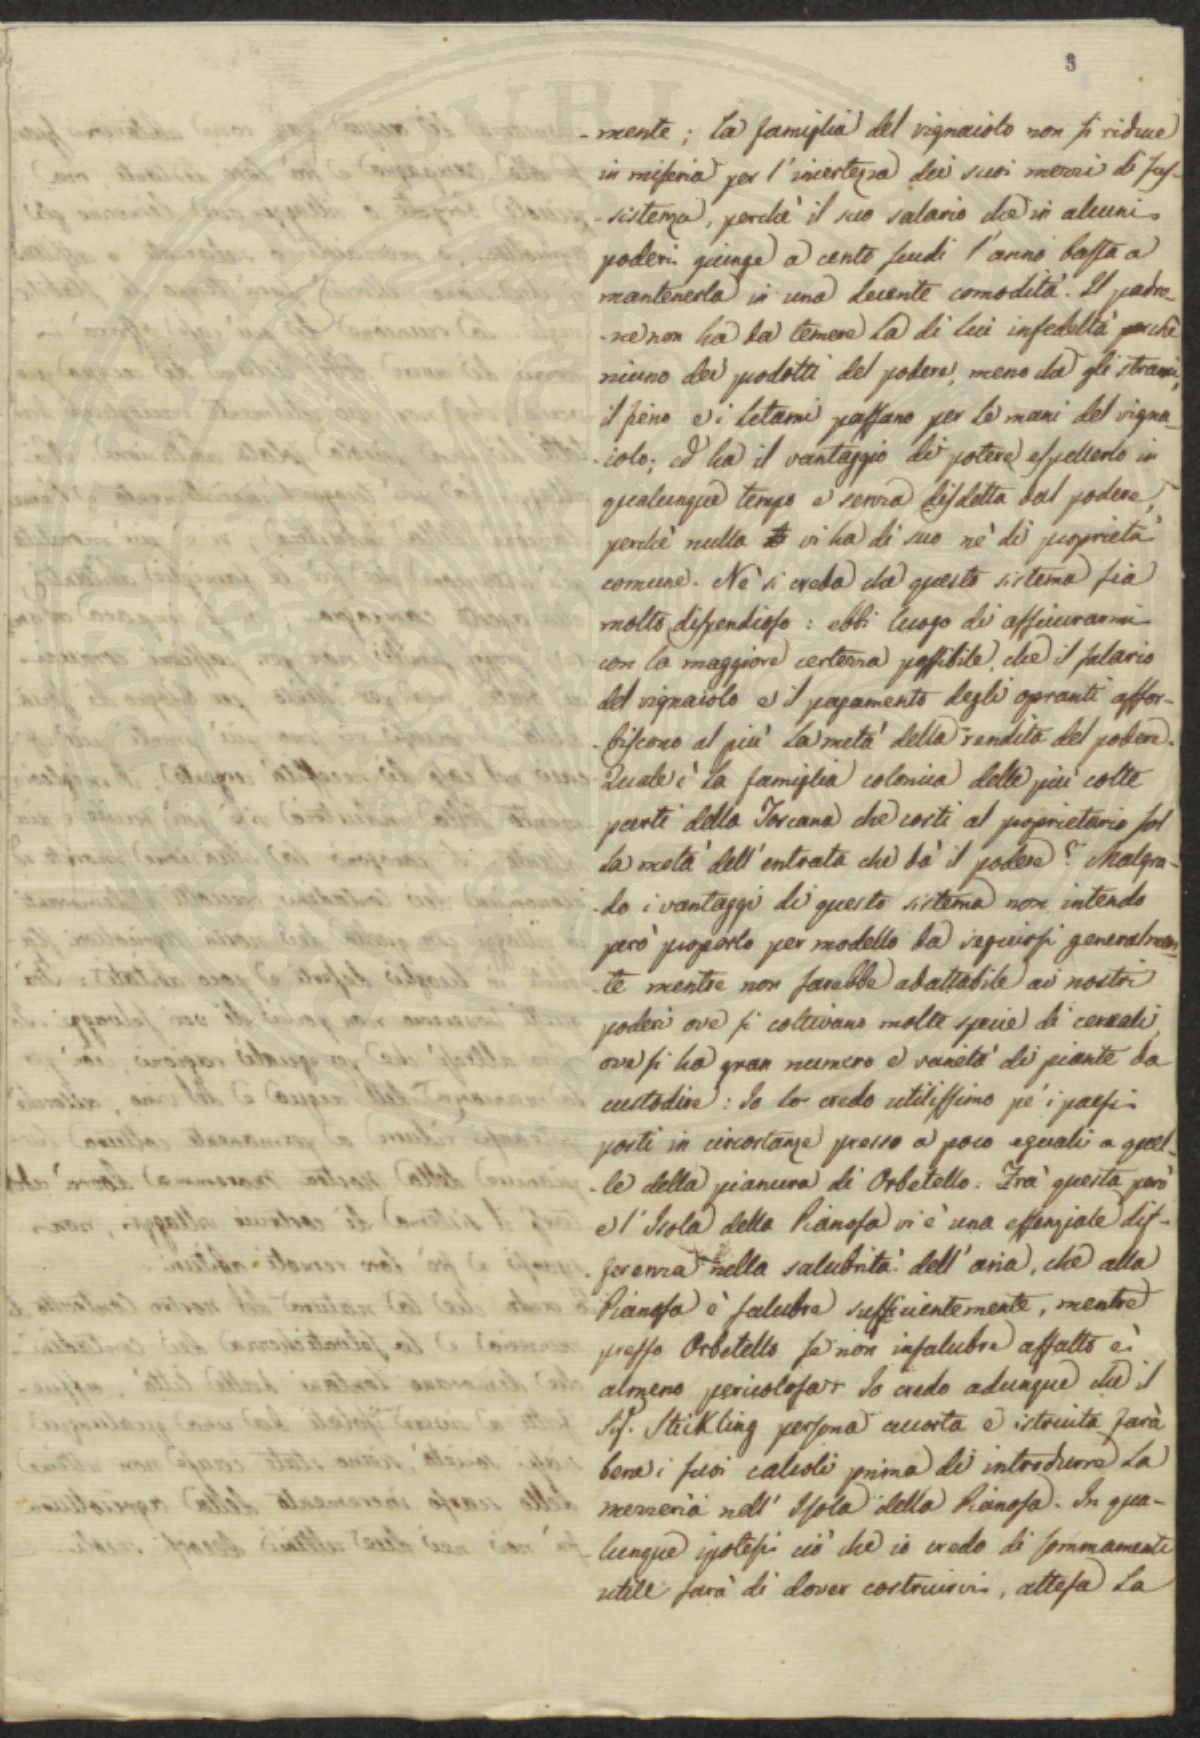 3
-mente; la famiglia del vignaiolo non si riduce
in miseria per l'incertezza dei suoi mezzi di sus-
-sistenza, perchè il suo salario che in alcuni
poderi giunge a cento scudi l'anno basta a
mantenerla in una decente comodità. Il padro-
-ne non ha da temere la di lui infedeltà perchè
niuno dei prodotti del podere, meno che gli strami,
il fieno e i letami passano per le mani del vigna-
-iolo; ed ha il vantaggio di potere espellerlo in
qualunque tempo e senza disdetta dal podere,
perchè nulla vi ha di suo nè di proprietà
comune. Nè si creda che questo sistema sia
molto dispendioso: ebbi luogo di assicurarmi
con la maggiore certezza possibile, che il salario
del vignaiolo e il pagamento degli opranti assor-
-biscono al più la metà della rendita del podere.
Quale è la famiglia colonica delle più colte
parti della Toscana che costi al proprietario sol
la metà dell'entrata che dà il podere? Malgra-
-do i vantaggi di questo sistema non intendo
però proporlo per modello da seguirsi generalmen-
-te mentre non sarebbe adattabile ai nostri
poderi ove si coltivano molte specie di cereali,
ove si ha gran numero e varietà di piante da
custodire: Io lo credo utilissimo pe' i paesi
posti in circostanze presso a poco eguali a quel-
-le della pianura di Orbetello. Frà questa però
e l'Isola della Pianosa vi è una essenziale dif-
ferenza nella salubrità dell'aria, che alla
Pianosa è salubre sufficientemente, mentre
presso Orbetello se non insalubre affatto è
almeno pericolosa. Io credo adunque che il
Sig. Stickling persona accorta e istruita farà
bene i suoi calcoli prima di introdurre la
mezzeria nell'Isola della Pianosa. In qua-
lunque ipotesi ciò che io credo di sommamente
utile sarà di dover costruirvi, attesa la